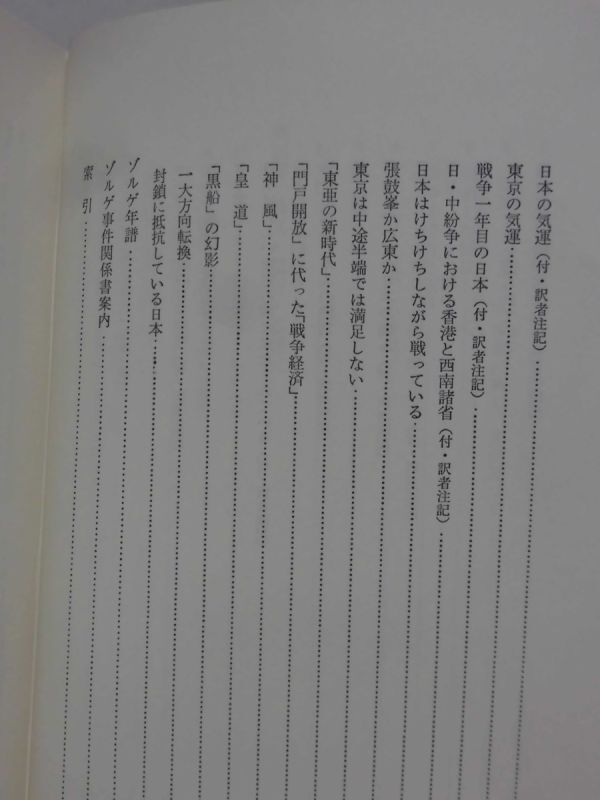 日本の気運（付・訳者注記）
東京の気運
戦争一年目の日本（付・訳者注記）
日・中紛争における香港と西南諸省（付・訳者注記）
日本はけちけちしながら戦っている
張鼓峯か広東か
東京は中途半端では満足しない
「東亜の新時代」
「門戸開放」に代った「戦争経済」
「神風」
「皇道」
「黒船」の幻影
一大方向転換
封鎖に抵抗している日本
ゾルゲ年譜
ゾルゲ事件関係書案内
索引